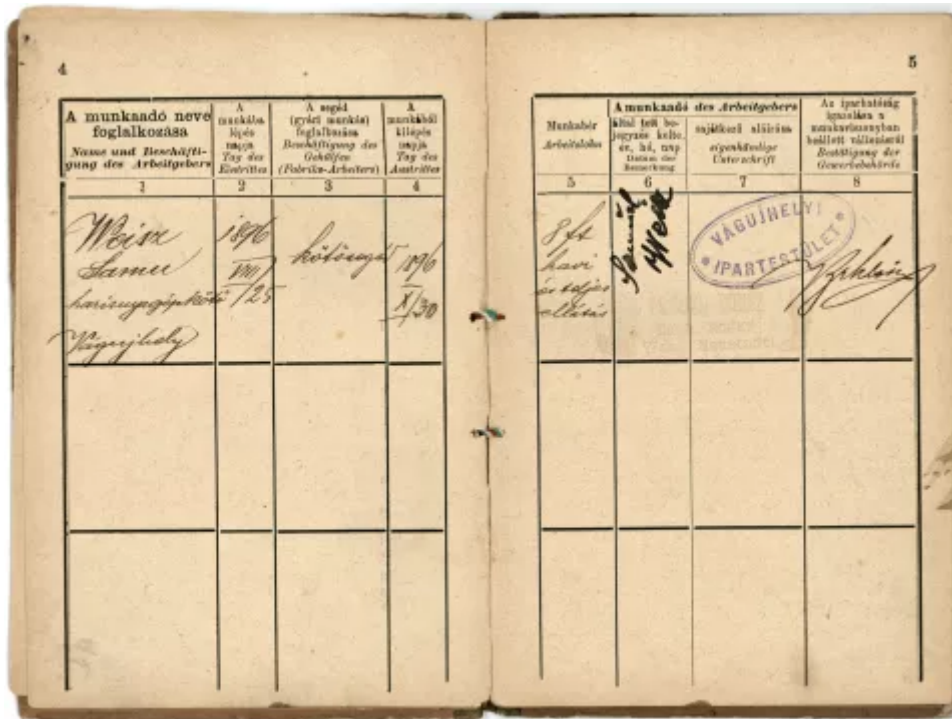 4
A munkaadó neve
foglalkozása
Name und Beschäfti-
gung des Arbeitgebers
A
munkába
lépés
napja
Tag des
Eintrittes
A segéd
(gyári munkás)
foglalkozása
Beschäftigung des
Gehülfen
(Fabriks-Arbeiters)
A
munkából
kilépés
napja
Tag des
Austrittes
1
2
3
4
Weisz
Samu
harisnyagépkötő
Vágujhely
1896
VIII/
/25
kötősegéd
1896
X/30
5
Munkabér
Arbeitslohn
A munkaadó des Arbeitgebers
által tett be-
jegyzés kelte.
év, hó, nap
Datum der
Bemerkung
sajátkezű aláírása
eigenhändige
Unterschrift
Az iparhatóság
igazolása a
munkaviszonyban
beállott változásról
Bestätigung der
Gewerbebehörde
5
6
7
8
8 ft
havi
és teljes
ellátás
Samuel
Weisz
VÁGUJHELYI
* IPARTESTÜLET *